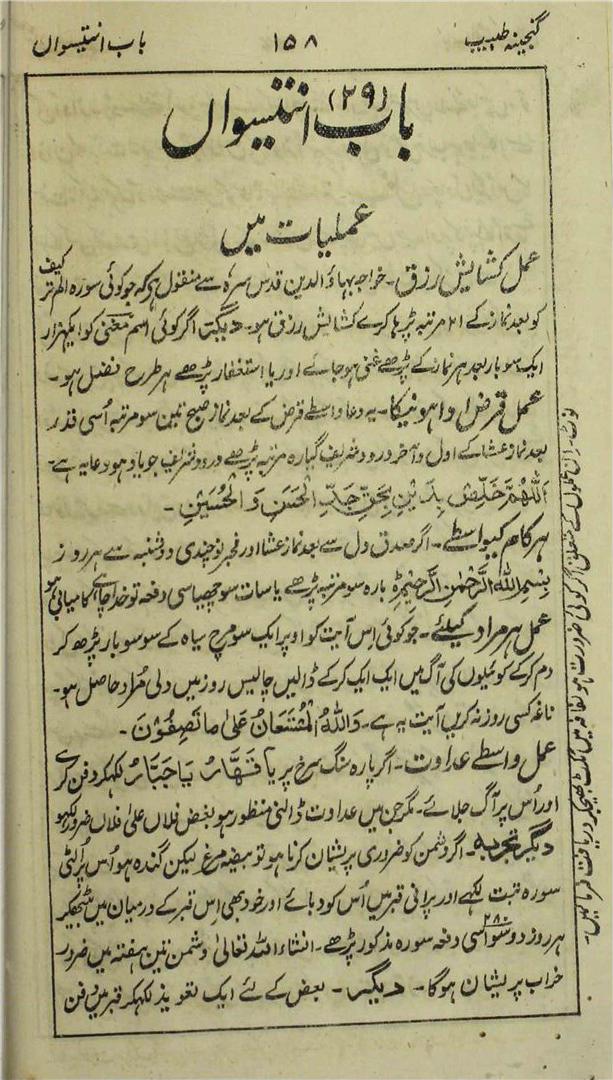 گنجینہ طبیب ۱۵۸ باب انتیسواں
باب (۲۹) انتیسواں
عملیات میں
عمل کشایش رزق۔ خواجہ بہاؤالدین قدس سرہ سے منقول ہے کہ جو کوئی سورہ الم تر کیف
کو بعد نماز کے ۲۱ مرتبہ پڑہا کرے کشایش رزق ہو۔ دیگر اگر کوئی اسم مغنی کو ایکہزار
ایک سو بار بعد ہر نماز کے پڑھے غنی ہو جائے اور یا استغفار پڑھے ہر طرح فضل ہو۔
عمل قرض ادا ہونیکا۔ یہ دعا واسطے قرض کے بعد نماز صبح تین سو مرتبہ اُسی قدر
بعد نماز عشا کے اول و آخر درود شریف گیارہ مرتبہ پڑھے درود شریف جو یاد ہو دعا یہ ہے۔
اَللّٰهُمَّ خَلِّصْ بِدَيْنِ بِحَقِّ جَدِّ الْحَسَنِ وَ الْحُسَيْنِ۔
ہر کام کیواسطے۔ اگر صدق دل سے بعد نماز عشا اور فجر نوچندی دوشنبہ سے ہر روز
بِسْمِ اللهِ الرَّحْمٰنِ الرَّحِيْمِ بارہ سو مرتبہ پڑھے یا سات سو چھیاسی دفعہ تو خدا چاہے کامیابی ہو
عمل ہر مراد کیلئے۔ جو کوئی اس آیت کو اوپر ایک سو مرچ سیاہ کے سو سو بار پڑھ کر
دم کر کے کوئیلوں کی آگ میں ایک ایک کر کے ڈالیں چالیس روز میں دلی مُراد حاصل ہو۔
ناغہ کسی روز نہ کریں آیت یہ ہے۔ وَاللهُ الْمُسْتَعَانُ عَلٰى مَا تَصِفُوْنَ۔
عمل واسطے عداوت۔ اگر پارہ سنگ سرخ پر یَا قَهَّارُ یَا جَبَّارُ لکہکر دفن کرے
اور اُس پر آگ جلائے۔ مگر جن میں عداوت ڈالنی منظور ہو بغض فلاں علیٰ فلاں ضرور لکہو
دیگر تجربہ۔ اگر دشمن کو ضروری پریشان کرنا ہو تو بیضہ مرغ لیکن گندہ ہو اُس پر اُلٹی
سورہ تبت لکہے اور پرانی قبر میں اُس کو دبائے اور خود بھی اس قبر کے درمیان میں بیٹھکر
ہر روز دو سو اسی ۲۸۰ دفعہ سورہ مذکور پڑھے۔ انشاء اللہ تعالیٰ دشمن تین ہفتہ میں ضرور
خراب پریشان ہوگا۔ دیگر۔ بعض کے لئے ایک تعویذ لکہکر قبر میں دفن